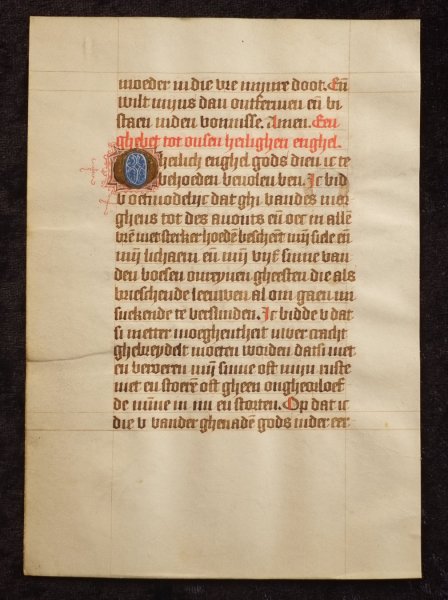 moeder in die vre mijnre doot. En̄
wilt mijns dan ontfermen en̄ bi
staen inden vonnisse. Amen. Een
ghebet tot onsen heilighen enghel.
O heilich enghel gods dien ic te
behoeden beuolen ben. Ic bid
v oetmodelijc dat ghi van des mor
ghens tot des auonts en̄ oec in allē
vrē met sterker hoedē beschermt mijn siele en̄
mijn lichaem en̄ mijn vijf sinne van
den boesen onreynen gheesten die als
brieschende leeuwen al om gaen mi
suekende te verslinden. Ic bidde v dat
si metter moeghentheit uwer cracht
ghebreydelt moeten worden datsi niet
en beroeren mijn sinne oft mijn ruste
niet en stoerē oft gheen ongheorloef
de mīne in mi en storten. Op dat ic
die v vander ghenadē gods inder eer